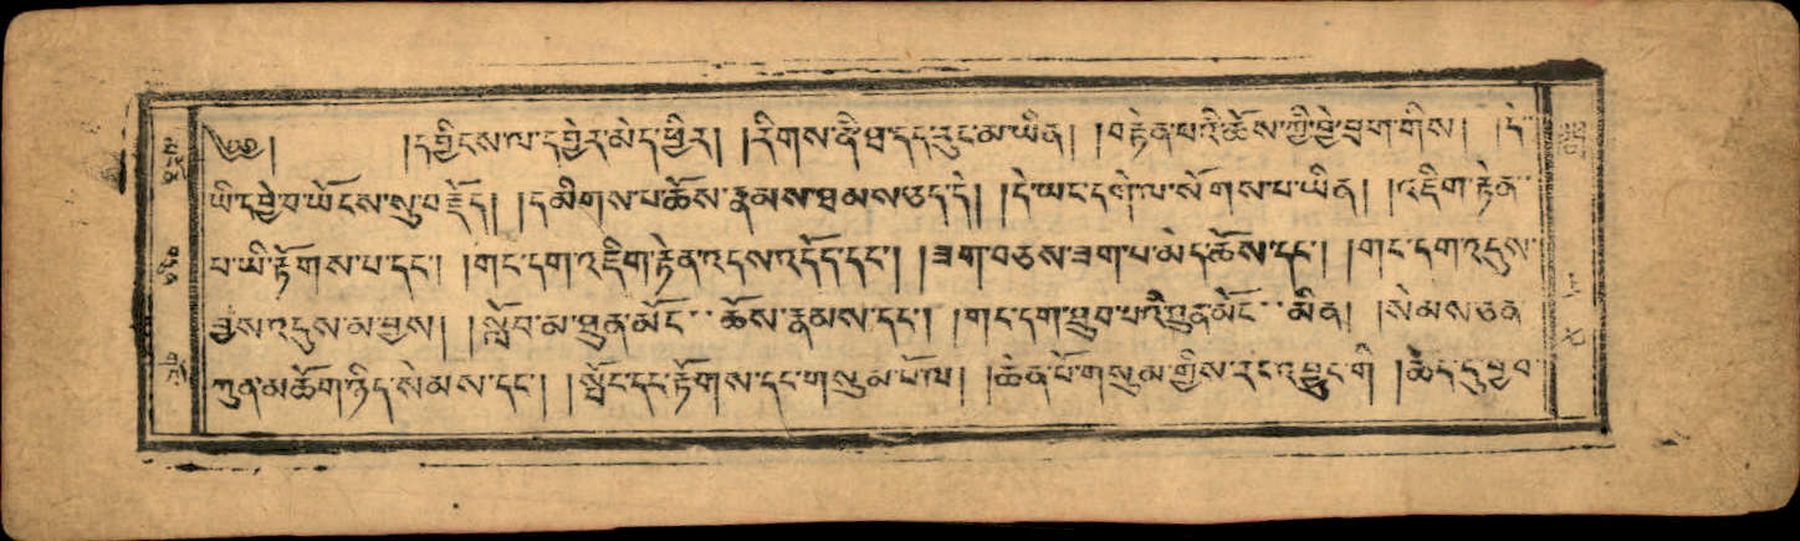 ༄༅། །དབྱིངས་ལ་དབྱེར་མེད་ཕྱིར། །རིགས་ནི་ཐ་དད་རུང་མ་ཡིན། །བརྟེན་པའི་ཆོས་ཀྱི་བྱེ་བྲག་གིས། །དེ་
ཡི་དབྱེ་བ་ཡོངས་སུ་བརྗོད། །དམིགས་པ་ཆོས་རྣམས་ཐམས་ཅད་དེ། །དེ་ཡང་དགེ་ལ་སོགས་པ་ཡིན། །འཇིག་རྟེན་
པ་ཡི་རྟོགས་པ་དང་། །གང་དག་འཇིག་རྟེན་འདས་འདོད་དང་། །ཟག་བཅས་ཟག་པ་མེད་ཆོས་དང་། །གང་དག་འདུས་
བྱས་འདུས་མ་བྱས། །སློབ་མ་ཐུན་མོང་ཆོས་རྣམས་དང་། །གང་དག་ཐུབ་པའི་ཐུན་མོང་མིན། །སེམས་ཅན་
ཀུན་མཆོག་ཉིད་སེམས་དང་། །སྤོང་དང་རྟོགས་དང་གསུམ་པོ་ལ། །ཆེན་པོ་གསུམ་གྱིས་རང་འབྱུང་གི །ཆེད་དུ་བྱ་བ་